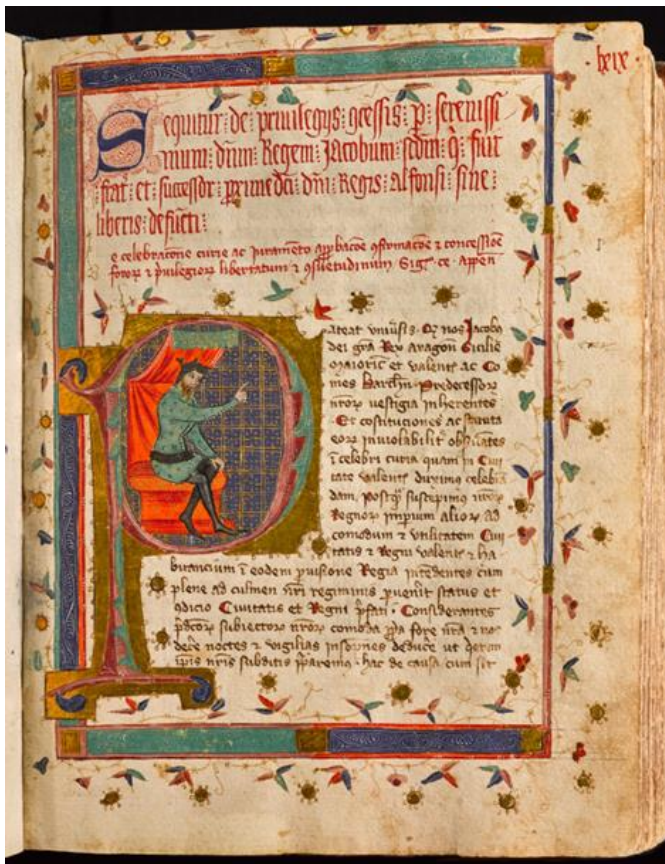 ·lxix·
Sequitur: de: privilegijs: ꝯcessis: p: serenissi
mum: dnm: Regem: Jacobum: sedm: q̇: fuit
frat̄: et: successor: prime dc̄i: dn̄i: Regis: alfonsi: sine
liberis: defuncti:
e celebracōne curie ac juramēto apꝓbacōe ꝯfirmacōe ⁊ concessiōe
foroꝝ ⁊ privilegioꝝ libertatum ⁊ ꝯsuetudinum
Pateat univ̄sis· Qꝫ nos Jacobꝰ
dei gr̄a Rex aragon̄ Sicilie
Maioric̄ et valent̄ ac Co
mes Barch̄n· Predecessoꝝ
nr̄oꝝ vestigia inherentes·
Et cōstituciones ac statuta
eoꝝ inviolabilit̄ obs̄vātes
ī celebri curia quam in Civi
tate valent̄ duximꝰ celebrā
dam, postꝙ suscepimꝰ nr̄oꝝ
Regnoꝝ imp̄ium alioꝝ ad
comodum ⁊ utilitatem Civi
tatis ⁊ Regni valent̄ ⁊ ha
bitancium ī eodem ꝓvisione Regia intēdentes cum
plene ad culmen nr̄i regiminis ꝓvenit status et
ꝯdicio Civitatis et Regni p̄fati· Considerantes
p̄dc̄oꝝ subiectoꝝ nr̄oꝝ comoda ꝓpa fore nr̄a ⁊ nos
dec̄re noctes ⁊ vigilias insopnes deducē ut
ip̄is nr̄is subditis p̄paremꝰ· hac de causa cum sit